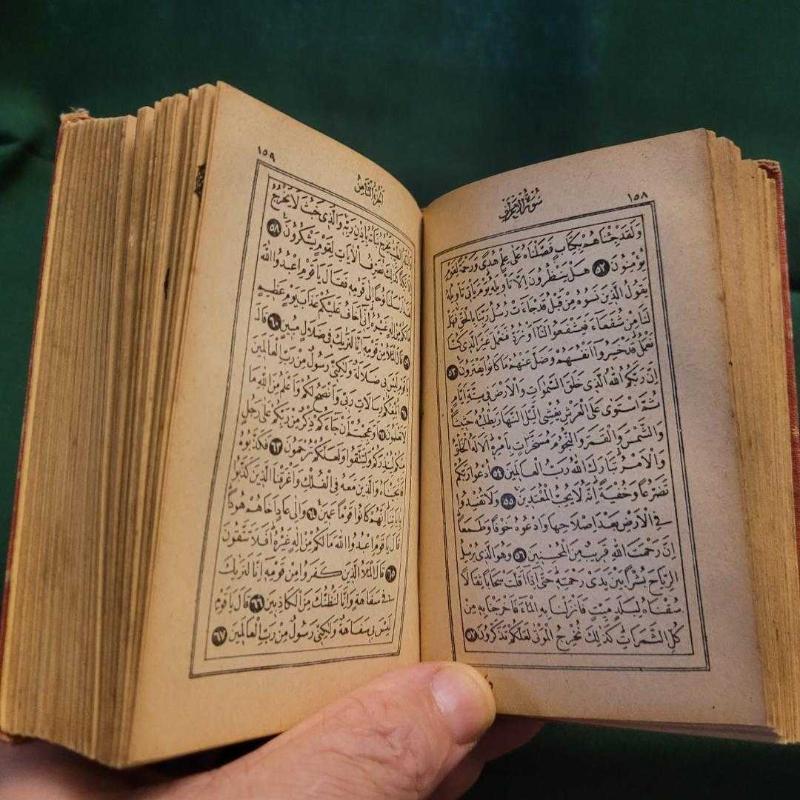 ١٥٨
سُورَةُ الْاَعْرَافِ
وَلَقَدْ جِئْنَاهُمْ بِكِتَابٍ فَصَّلْنَاهُ عَلٰى عِلْمٍ هُدًى وَرَحْمَةً لِقَوْمٍ
يُؤْمِنُونَ ٥٢ هَلْ يَنْظُرُونَ اِلَّا تَأْوِيلَهُ يَوْمَ يَأْتِى تَأْوِيلُهُ
يَقُولُ الَّذِينَ نَسُوهُ مِنْ قَبْلُ قَدْ جَاءَتْ رُسُلُ رَبِّنَا بِالْحَقِّ فَهَلْ
لَنَا مِنْ شُفَعَاءَ فَيَشْفَعُوا لَنَا اَوْ نُرَدُّ فَنَعْمَلَ غَيْرَ الَّذِى كُنَّا
نَعْمَلُ قَدْ خَسِرُوا اَنْفُسَهُمْ وَضَلَّ عَنْهُمْ مَا كَانُوا يَفْتَرُونَ ٥٣
اِنَّ رَبَّكُمُ اللّٰهُ الَّذِى خَلَقَ السَّمٰوَاتِ وَالْاَرْضَ فِى سِتَّةِ اَيَّامٍ
ثُمَّ اسْتَوٰى عَلَى الْعَرْشِ يُغْشِى الَّيْلَ النَّهَارَ يَطْلُبُهُ حَثِيثًا
وَالشَّمْسَ وَالْقَمَرَ وَالنُّجُومَ مُسَخَّرَاتٍ بِاَمْرِهِ اَلَا لَهُ الْخَلْقُ
وَالْاَمْرُ تَبَارَكَ اللّٰهُ رَبُّ الْعَالَمِينَ ٥٤ اُدْعُوا رَبَّكُمْ
تَضَرُّعًا وَخُفْيَةً اِنَّهُ لَا يُحِبُّ الْمُعْتَدِينَ ٥٥ وَلَا تُفْسِدُوا
فِى الْاَرْضِ بَعْدَ اِصْلَاحِهَا وَادْعُوهُ خَوْفًا وَطَمَعًا
اِنَّ رَحْمَتَ اللّٰهِ قَرِيبٌ مِنَ الْمُحْسِنِينَ ٥٦ وَهُوَ الَّذِى يُرْسِلُ
الرِّيَاحَ بُشْرًا بَيْنَ يَدَىْ رَحْمَتِهِ حَتّٰى اِذَا اَقَلَّتْ سَحَابًا ثِقَالًا
سُقْنَاهُ لِبَلَدٍ مَيِّتٍ فَاَنْزَلْنَا بِهِ الْمَاءَ فَاَخْرَجْنَا بِهِ مِنْ
كُلِّ الثَّمَرَاتِ كَذٰلِكَ نُخْرِجُ الْمَوْتٰى لَعَلَّكُمْ تَذَكَّرُونَ ٥٧
١٥٩
اَلْجُزْءُ الثَّامِنُ
الطَّيِّبُ يَخْرُجُ نَبَاتُهُ بِاِذْنِ رَبِّهِ وَالَّذِى خَبُثَ لَا يَخْرُجُ
كَذٰلِكَ نُصَرِّفُ الْاٰيَاتِ لِقَوْمٍ يَشْكُرُونَ ٥٨
اَرْسَلْنَا نُوحًا اِلٰى قَوْمِهِ فَقَالَ يَاقَوْمِ اعْبُدُوا اللّٰهَ
مِنْ اِلٰهٍ غَيْرُهُ اِنِّى اَخَافُ عَلَيْكُمْ عَذَابَ يَوْمٍ عَظِيمٍ
٥٩ قَالَ الْمَلَاُ مِنْ قَوْمِهِ اِنَّا لَنَرٰيكَ فِى ضَلَالٍ مُبِينٍ ٦٠ قَالَ
لَيْسَ بِى ضَلَالَةٌ وَلٰكِنِّى رَسُولٌ مِنْ رَبِّ الْعَالَمِينَ
٦١ اُبَلِّغُكُمْ رِسَالَاتِ رَبِّى وَاَنْصَحُ لَكُمْ وَاَعْلَمُ مِنَ اللّٰهِ مَا
لَا تَعْلَمُونَ ٦٢ اَوَعَجِبْتُمْ اَنْ جَاءَكُمْ ذِكْرٌ مِنْ رَبِّكُمْ عَلٰى رَجُلٍ
مِنْكُمْ لِيُنْذِرَكُمْ وَلِتَتَّقُوا وَلَعَلَّكُمْ تُرْحَمُونَ ٦٣ فَكَذَّبُوهُ
فَاَنْجَيْنَاهُ وَالَّذِينَ مَعَهُ فِى الْفُلْكِ وَاَغْرَقْنَا الَّذِينَ كَذَّبُوا
بِاٰيَاتِنَا اِنَّهُمْ كَانُوا قَوْمًا عَمِينَ ٦٤ وَاِلٰى عَادٍ اَخَاهُمْ هُودًا
قَالَ يَاقَوْمِ اعْبُدُوا اللّٰهَ مَا لَكُمْ مِنْ اِلٰهٍ غَيْرُهُ اَفَلَا تَتَّقُونَ
٦٥ قَالَ الْمَلَاُ الَّذِينَ كَفَرُوا مِنْ قَوْمِهِ اِنَّا لَنَرٰيكَ
فِى سَفَاهَةٍ وَاِنَّا لَنَظُنُّكَ مِنَ الْكَاذِبِينَ ٦٦ قَالَ يَاقَوْمِ
لَيْسَ بِى سَفَاهَةٌ وَلٰكِنِّى رَسُولٌ مِنْ رَبِّ الْعَالَمِينَ ٦٧